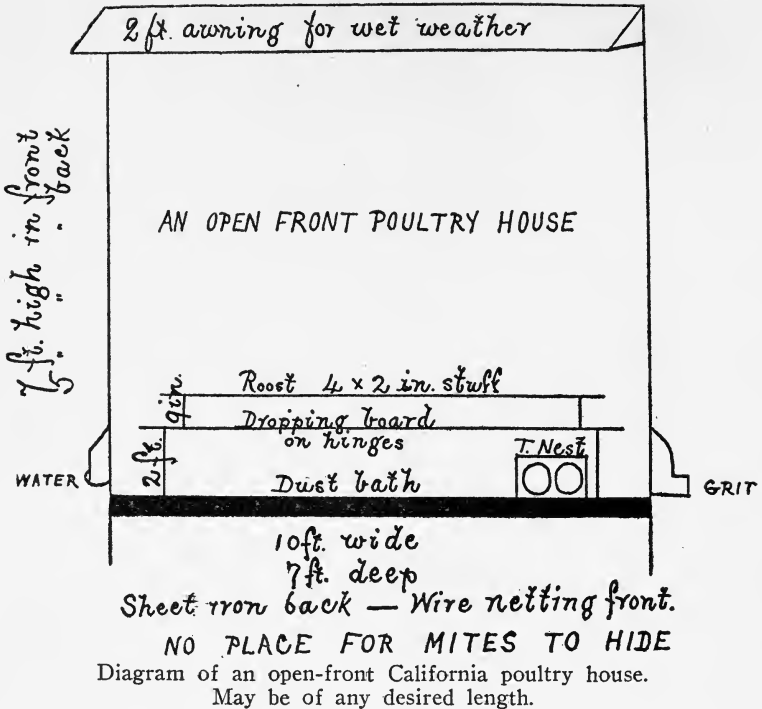 2 ft. awning for wet weather
7 ft. high in front
5 " " " back
AN OPEN FRONT POULTRY HOUSE
Roost 4 × 2 in. stuff
9 in.
Dropping board
on hinges
2-ft.
T. Nest
WATER
Dust bath
GRIT
10 ft. wide
7 ft. deep
Sheet iron back — Wire netting front.
NO PLACE FOR MITES TO HIDE
Diagram of an open-front California poultry house.
May be of any desired length.